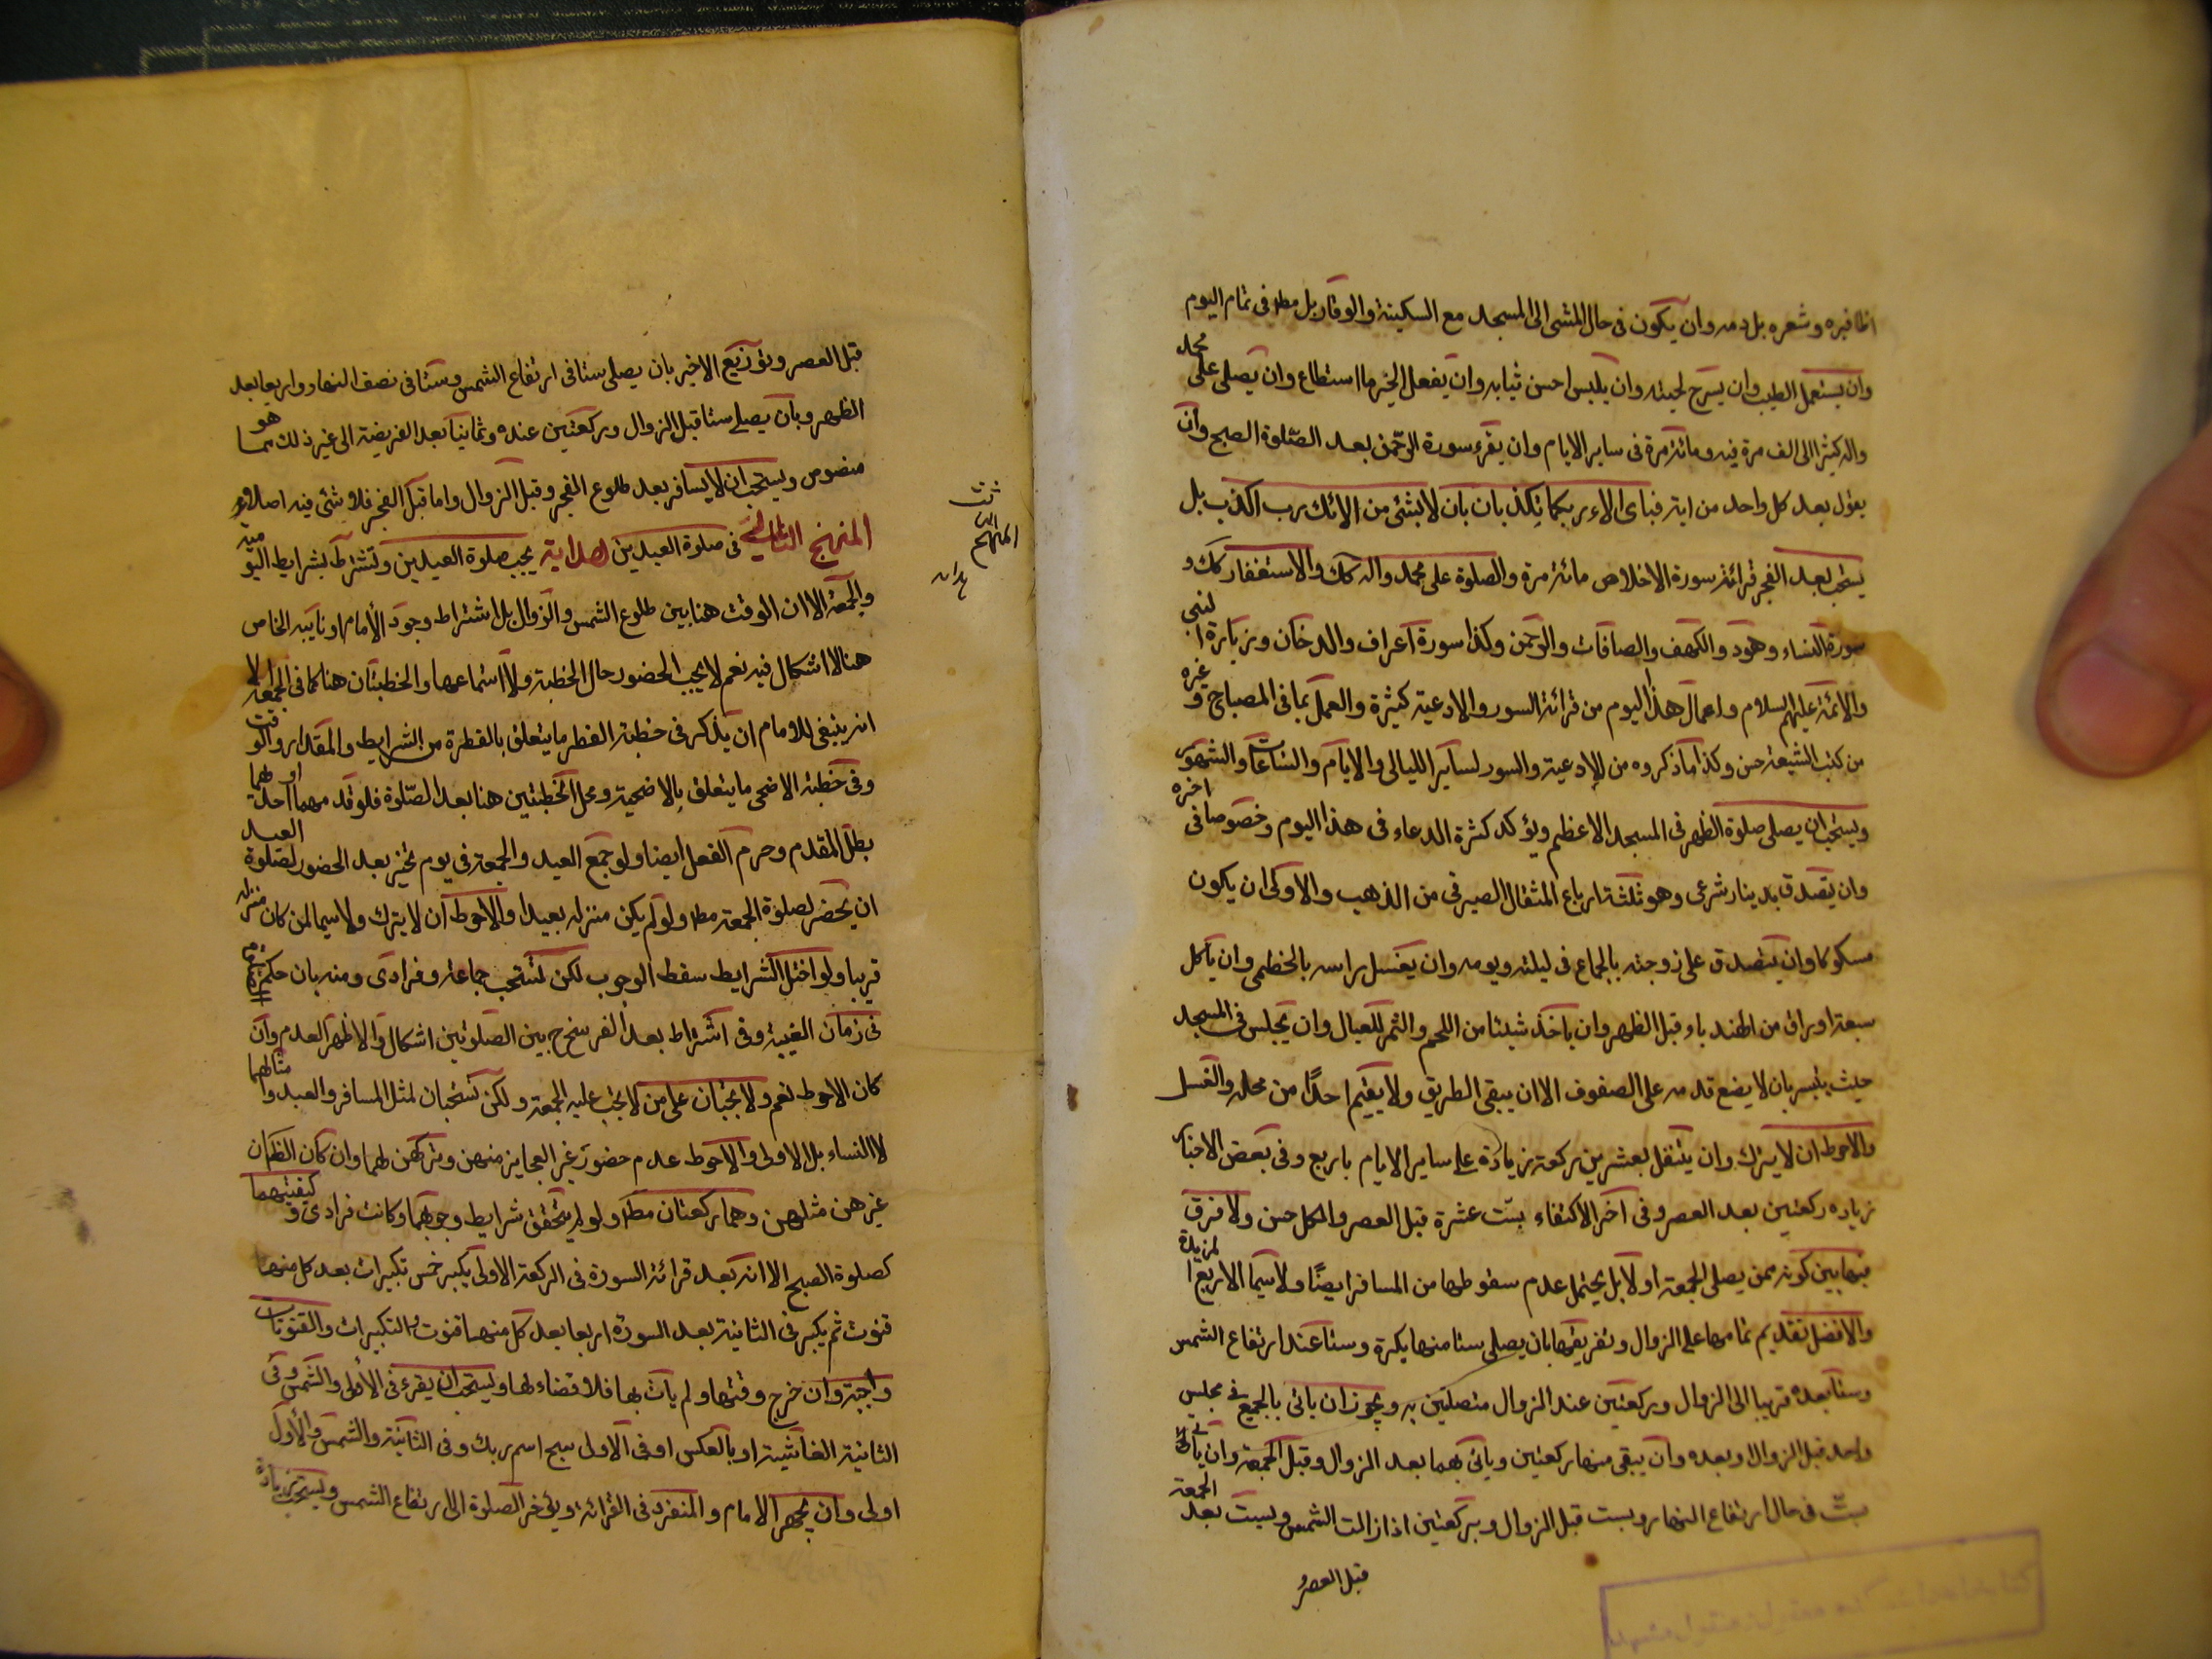 اظافيره وشعره بل دمه وان يكون فى حال المشى الى المسجد مع السكينة والوقار بل مطا فى تمام اليوم
وان يستعمل الطيب وان يسرح لحيته وان يلبس احسن ثيابه وان يفعل الخير ما استطاع وان يصلى على محمد
واله كثيرا الى الف مرة فيه ومائة مرة فى ساير الايام وان يقرء سورة الرحمن بعد الصلوة الصبح وان
يقول بعد كل واحد من اية فباى الاء ربكما تكذبان بان لا بشئ من الائك رب اكذب بل
يستحب بعد الفجر قرائة سورة الاخلاص مائة مرة والصلوة على محمد واله كك والاستغفار كك و
سورة النساء وهود والكهف والصافات والرحمن وكذا سورة اعراف والدخان وزيارة النبى
والائمة عليهم السلام واعمال هذا اليوم من قرائة السور والادعية كثيرة والعمل بما فى المصباح وغيره
من كتب الشيعة حسن وكذا ما ذكروه من الادعية والسور لساير الليالى والايام والساعات والشهور
ويستحب ان يصلى صلوة الظهر فى المسجد الاعظم ويؤكد كثرة الدعاء فى هذا اليوم وخصوصا فى اخره
وان يتصدق بدينار شرعى وهو ثلثة ارباع المثقال الصيرفى من الذهب والاولى ان يكون
مسكوكا وان يتصدق على زوجته بالجماع فى ليلته ويومه وان يغسل راسه بالخطمى وان ياكل
سبعة اوراق من الهندباء قبل الظهر وان ياخذ شيئا من اللحم والثمر للعيال وان يجلس فى المسجد
حيث يتيسر بان لا يضع قدمه على الصفوف الا ان يبقى الطريق ولا يقيم احدا من محله والغسل
والاحوط ان لا يترك وان يتنفل بعشرين ركعة بزيادة على ساير الايام باربع وفى بعض الاخبار
زياده ركعتين بعد العصر وفى اخر الاكتفاء بست عشرة قبل العصر والكل حسن ولا فرق
فيها بين كونه ممن يصلى الجمعة او لا بل يحتمل عدم سقوطها من المسافر ايضا ولا سيما الاربع المزيدة
والافضل تقديم تمامها على الزوال وتفريقها بان يصلى ستا منها بكرة وستا عند ارتفاع الشمس
وستا بعده قريبا الى الزوال وركعتين عند الزوال متصلتين به ويجوز ان ياتى بالجميع فى مجلس
واحد قبل الزوال وبعده وان يبقى منها ركعتين وياتى بهما بعد الزوال وقبل الجمعة وان ياتى
بست فى حال ارتفاع النهار وبست قبل الزوال وبركعتين اذا زالت الشمس وبست بعد الجمعة
قبل العصر
قبل العصر وتوزيع الاخير بان يصلى ستا فى ارتفاع الشمس وستا فى نصف النهار واربعا بعد
الظهر وبان يصلى ستا قبل الزوال وركعتين عنده وثمانيا بعد الفريضة الى غير ذلك مما هو
منصوص ويستحب ان لا يسافر بعد طلوع الفجر وقبل الزوال واما قبل الفجر فلا شئ فيه اصلا
المنهج الثالث فى صلوة العيدين هداية يجب صلوة العيدين وتشترط بشرايط اليومية
والجمعة الا ان الوقت هنا بين طلوع الشمس والزوال بل اشتراط وجود الأمام او نايبه الخاص
هنا لا اشكال فيه نعم لا يجب الحضور حال الخطبة ولا استماعها والخطبتان هنا كما فى الجمعة الا
انه ينبغى للامام ان يذكر فى خطبة الفطر ما يتعلق بالفطرة من الشرايط والمقدار والوقت
وفى خطبة الاضحى ما يتعلق بالاضحية ومحل الخطبتين هنا بعد الصلوة فلو قدمهما او احدهما
بطل المقدم وحرم الفعل ايضا ولو جمع العيد والجمعة فى يوم تخير بعد الحضور لصلوة العيد
ان يحضر لصلوة الجمعة مطا ولو لم يكن منزله بعيدا والاحوط ان لا يترك ولا سيما لمن كان منزله
قريبا ولو اختل الشرايط سقط الوجوب لكن تستحب جماعة وفرادى ومنه بان حكم
فى زمان الغيبة وفى اشتراط بعد الفرسخ بين الصلوتين اشكال والاظهر العدم وان
كان الاحوط نعم ولا تجبان على من لا تجب عليه الجمعة ولكن تستحبان لمثل المسافر والعبد وامثالهما
لا النساء بل الاولى والاحوط عدم حضور غير العجايز منهن وتركهن لهما وان كان الظ ان
غيرهن مثلهن وهما ركعتان مطا ولو لم يتحقق شرايط وجوبهما وكانت فرادى وكيفيتهما
كصلوة الصبح الا انه بعد قرائة السورة فى الركعة الاولى يكبر خمس تكبيرات بعد كل منها
قنوت ثم يكبر فى الثانية بعد السورة اربعا بعد كل منها قنوت والتكبيرات والقنوتات
واجبة وان خرج وقتها ولم يات بها فلا قضاء لها ويستحب ان يقرء فى الأولى والشمس وفى
الثانية الغاشية او بالعكس او فى الاولى سبح اسم ربك وفى الثانية والشمس والأول
اولى وان يجهر الامام والمنفرد فى القرائة ويؤخر الصلوة الى ارتفاع الشمس ويستحب زيادة